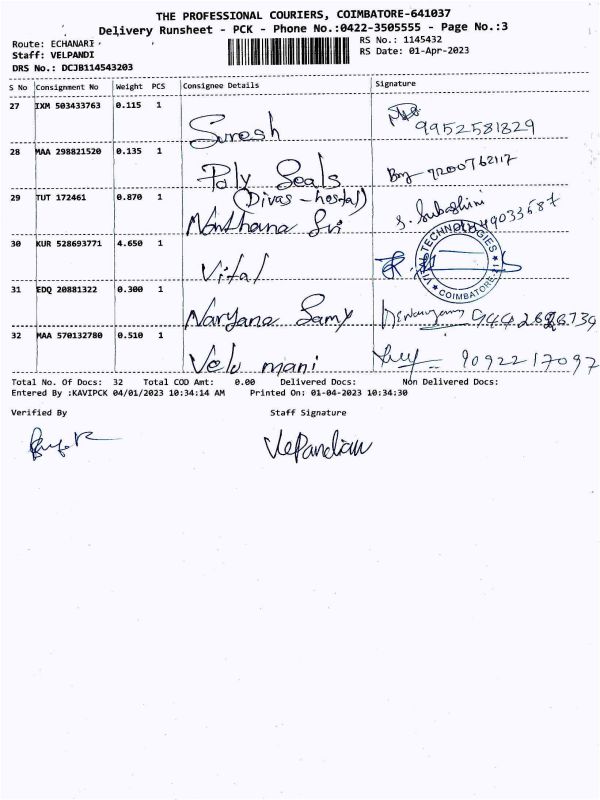 THE PROFESSIONAL COURIERS, COIMBATORE-641037
Delivery Runsheet - PCK - Phone No.:0422-3505555 - Page No.:3
Route: ECHANARI
RS No.: 1145432
Staff: VELPANDI
RS Date: 01-Apr-2023
DRS No.: DCJB114543203
S No Consignment No Weight PCS Consignee Details Signature
27 IXM 503433763 0.115 1 Suresh 9952581829
28 MAA 298821520 0.135 1 Poly Seals 9200762117
29 TUT 172461 0.870 1 (Divas - hostal) S. Subashini
Nanthana Sri
30 KUR 528693771 4.650 1 Vital TECHNOLOGIES COIMBATORE
31 EDQ 20881322 0.300 1 Naryana Samy
32 MAA 570132780 0.510 1 Velu mani 9092217097
Total No. Of Docs: 32 Total COD Amt: 0.00 Delivered Docs: Non Delivered Docs:
Entered By :KAVIPCK 04/01/2023 10:34:14 AM Printed On: 01-04-2023 10:34:30
Verified By Staff Signature
VelPandian